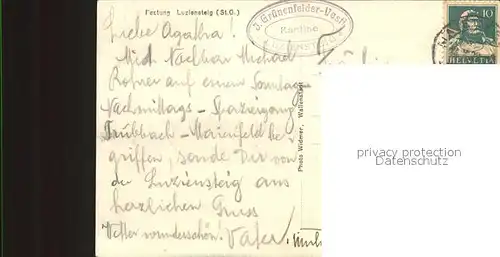 Festung Luziensteig (St.G.)
J. Grünenfelder-Vesti
Kantine
LUZIENSTEIG
10
HELVETIA
Liebe Agatha!
Mich Nachbar Michael
Rohrer auf einem Sonntag-
Nachmittags - Spaziergang
Trübbach - Maienfeld be-
griffen, sende Dir von
der Luziensteig aus
herzlichen Gruss
Wetter wunderschön! Vater.
Photo Widmer, Wallenstadt
privacy protection
Datenschutz